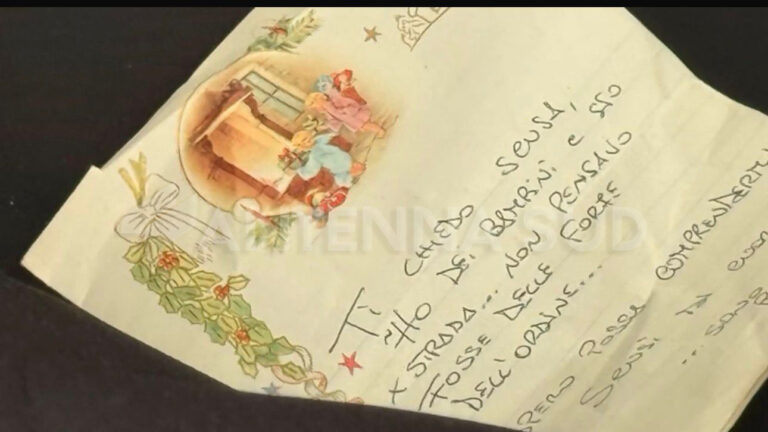 Ti CHIEDO SCUSA,
HO DEI BAMBINI E STO
X STRADA... NON PENSAVO
FOSSE DELLE FORZE
DELL'ORDINE...
SPERO POSSA COMPRENDERMI
SCUSI
...
ANTENNA SUD